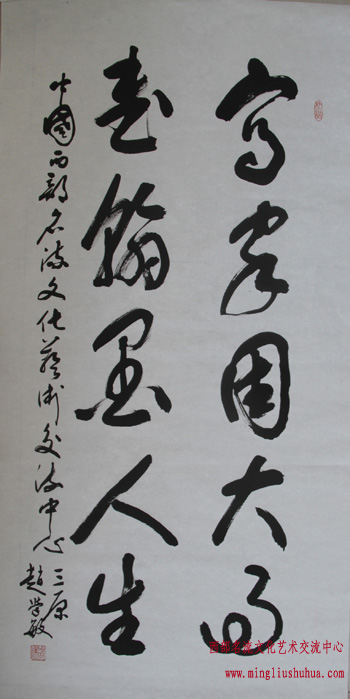 寫家國大事
書翰墨人生
中國西部名流文化藝術交流中心 三原
趙学敏
西部名流文化艺术交流中心
www.mingliushuhua.com